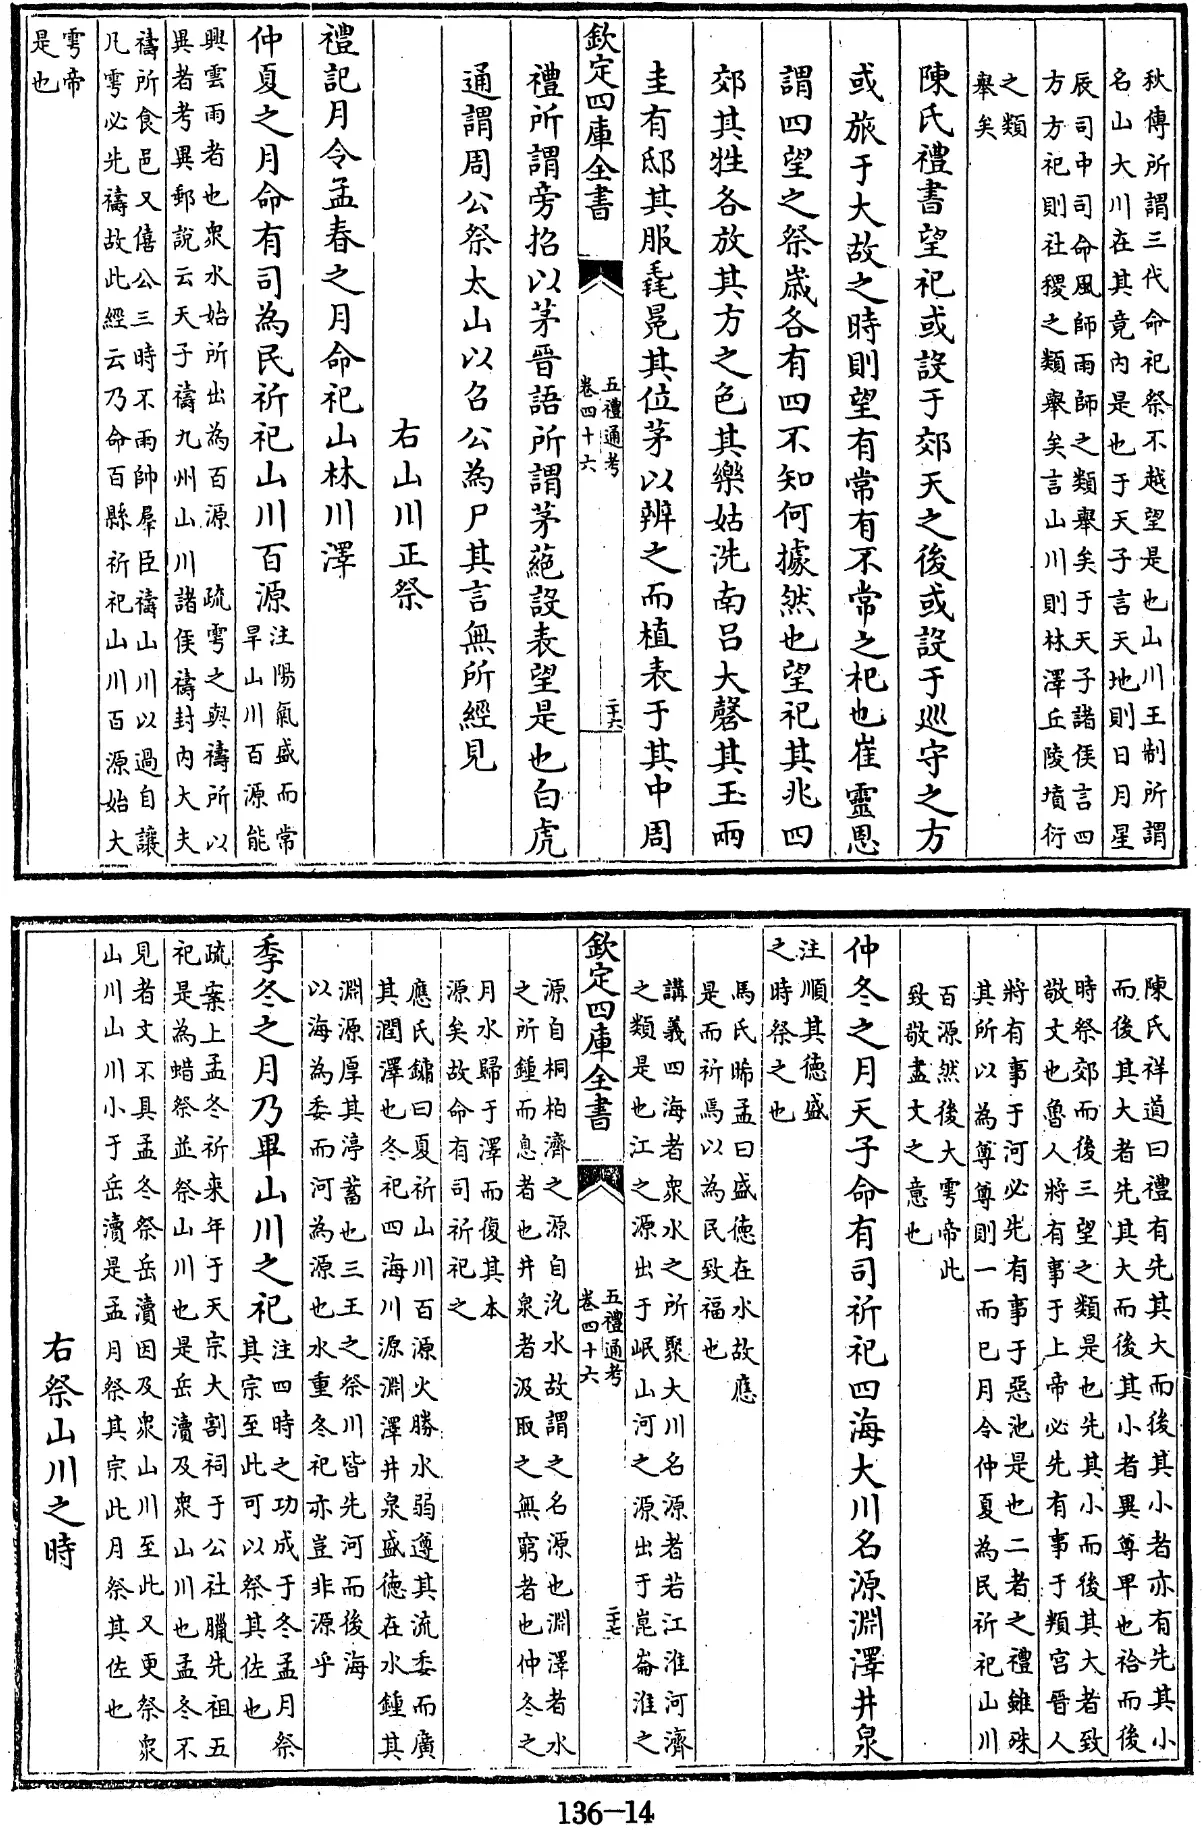 秋傳所謂三代命祀祭不越望是也山川王制所謂
名山大川在其竟內是也于天子言天地則日月星
辰司中司命風師雨師之類舉矣于天子諸侯言四
方方祀則社稷之類舉矣言山川則林澤丘陵墳衍
之類
舉矣
陳氏禮書望祀或設于郊天之後或設于巡守之方
或旅于大故之時則望有常有不常之祀也崔靈恩
謂四望之祭嵗各有四不知何據然也望祀其兆四
郊其牲各放其方之色其樂姑洗南吕大磬其玉兩
圭有邸其服毳冕其位茅以辨之而植表于其中周
欽定四庫全書
五禮通考
卷四十六
二十六
禮所謂旁招以茅晉語所謂茅蕝設表望是也白虎
通謂周公祭太山以召公為尸其言無所經見
右山川正祭
禮記月令孟春之月命祀山林川澤
仲夏之月命有司為民祈祀山川百源
注陽氣盛而常
旱山川百源能
興雲雨者也衆水始所出為百源 疏雩之與禱所以
異者考異郵說云天子禱九州山川諸侯禱封內大夫
禱所食邑又僖公三時不雨帥羣臣禱山川以過自讓
凡雩必先禱故此經云乃命百縣祈祀山川百源始大
雩帝
是也
陳氏祥道曰禮有先其大而後其小者亦有先其小
而後其大者先其大而後其小者異尊卑也祫而後
時祭郊而後三望之類是也先其小而後其大者致
敬文也魯人將有事于上帝必先有事于頖宮晉人
將有事于河必先有事于惡池是也二者之禮雖殊
其所以為尊尊則一而已月令仲夏為民祈祀山川
百源然後大雩帝此
致敬盡文之意也
仲冬之月天子命有司祈祀四海大川名源淵澤井泉
注順其德盛
之時祭之也
馬氏晞孟曰盛德在水故應
是而祈焉以為民致福也
講義四海者衆水之所聚大川名源者若江淮河濟
之類是也江之源出于岷山河之源出于崑崙淮之
欽定四庫全書
五禮通考
卷四十六
二十七
源自桐柏濟之源自沇水故謂之名源也淵澤者水
之所鍾而息者也井泉者汲取之無窮者也仲冬之
月水歸于澤而復其本
源矣故命有司祈祀之
應氏鏞曰夏祈山川百源火勝水弱遵其流委而廣
其潤澤也冬祀四海川源淵澤井泉盛德在水鍾其
淵源厚其渟蓄也三王之祭川皆先河而後海
以海為委而河為源也水重冬祀亦豈非源乎
季冬之月乃畢山川之祀
注四時之功成于冬孟月祭
其宗至此可以祭其佐也
疏案上孟冬祈來年于天宗大割祠于公社臘先祖五
祀是為蜡祭並祭山川也是岳瀆及衆山川也孟冬不
見者文不具孟冬祭岳瀆因及衆山川至此又更祭衆
山川山川小于岳瀆是孟月祭其宗此月祭其佐也
右祭山川之時
136—14